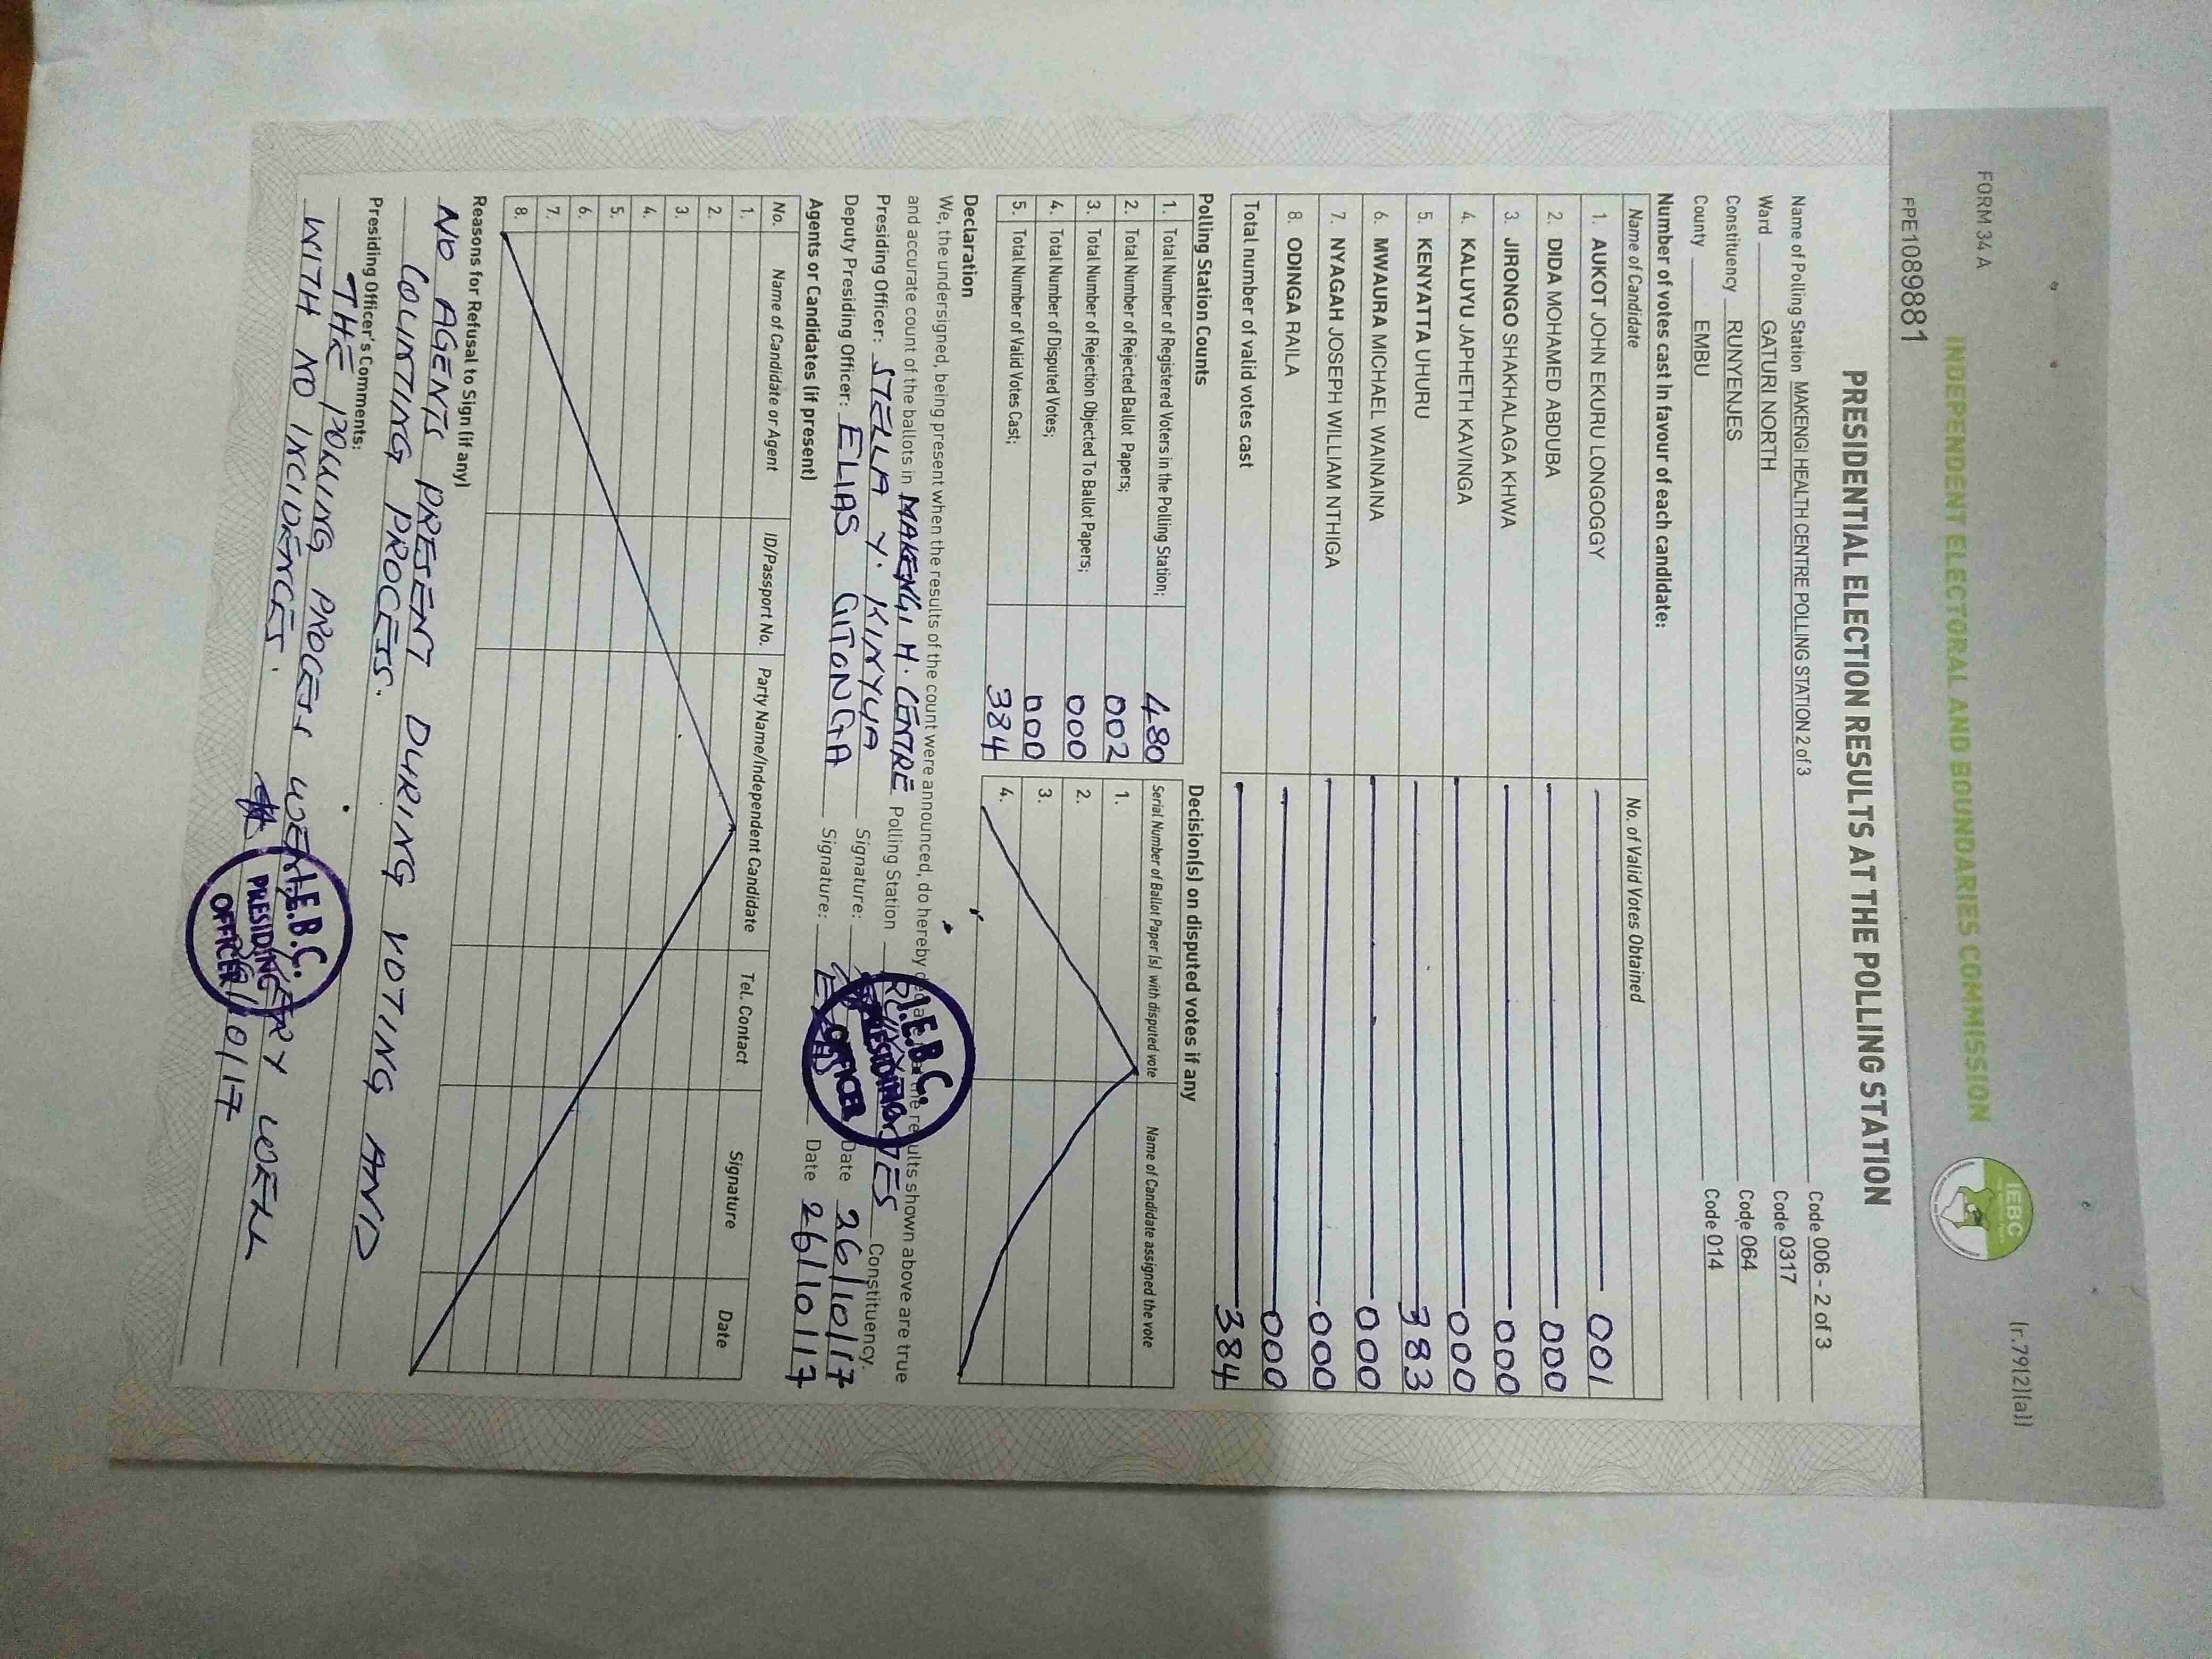 FORM 34 A
(r.79(2)(a))
FPE1089881
INDEPENDENT ELECTORAL AND BOUNDARIES COMMISSION
IEBC
PRESIDENTIAL ELECTION RESULTS AT THE POLLING STATION
Name of Polling Station MAKENGI HEALTH CENTRE POLLING STATION 2 of 3 Code 006 - 2 of 3
Ward GATURI NORTH Code 0317
Constituency RUNYENJES Code 064
County EMBU Code 014
Number of votes cast in favour of each candidate:
Name of Candidate No. of Valid Votes Obtained
1. AUKOT JOHN EKURU LONGOGGY 001
2. DIDA MOHAMED ABDUBA 000
3. JIRONGO SHAKHALAGA KHWA 000
4. KALUYU JAPHETH KAVINGA 000
5. KENYATTA UHURU 383
6. MWAURA MICHAEL WAINAINA 000
7. NYAGAH JOSEPH WILLIAM NTHIGA 000
8. ODINGA RAILA 000
Total number of valid votes cast 384
Polling Station Counts
1. Total Number of Registered Voters in the Polling Station; 480
2. Total Number of Rejected Ballot Papers; 002
3. Total Number of Rejection Objected To Ballot Papers; 000
4. Total Number of Disputed Votes; 000
5. Total Number of Valid Votes Cast; 384
Decision(s) on disputed votes if any
Serial Number of Ballot Paper (s) with disputed vote Name of Candidate assigned the vote
1.
2.
3.
4.
Declaration
We, the undersigned, being present when the results of the count were announced, do hereby declare that the results shown above are true
and accurate count of the ballots in MAKENGI H. CENTRE Polling Station RUNYENJES Constituency.
Presiding Officer: STELLA Y. KINYUA Signature: Date 26/10/17
Deputy Presiding Officer: ELIAS GITONGA Signature: Date 26/10/17
I.E.B.C.
PRESIDING
OFFICER
Agents or Candidates (if present)
No. Name of Candidate or Agent ID/Passport No. Party Name/Independent Candidate Tel. Contact Signature Date
1.
2.
3.
4.
5.
6.
7.
8.
Reasons for Refusal to Sign (if any)
NO AGENTS PRESENT DURING VOTING AND
COUNTING PROCESS.
Presiding Officer's Comments:
THE POLLING PROCESS WENT VERY WELL
WITH NO INCIDENCES.
I.E.B.C.
PRESIDING
OFFICER